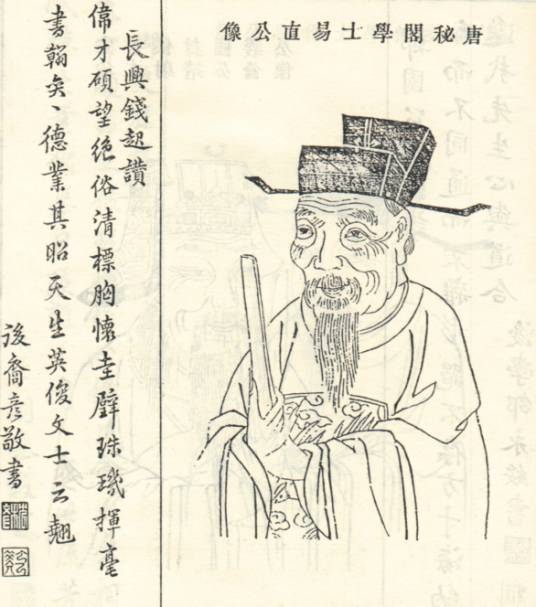 唐秘閣學士易直公像
長興錢起讚
偉才碩望絕俗清標胸懷圭璧珠璣揮毫
書翰奕〻德業其昭天生英俊文士云翹
後裔彥敬書